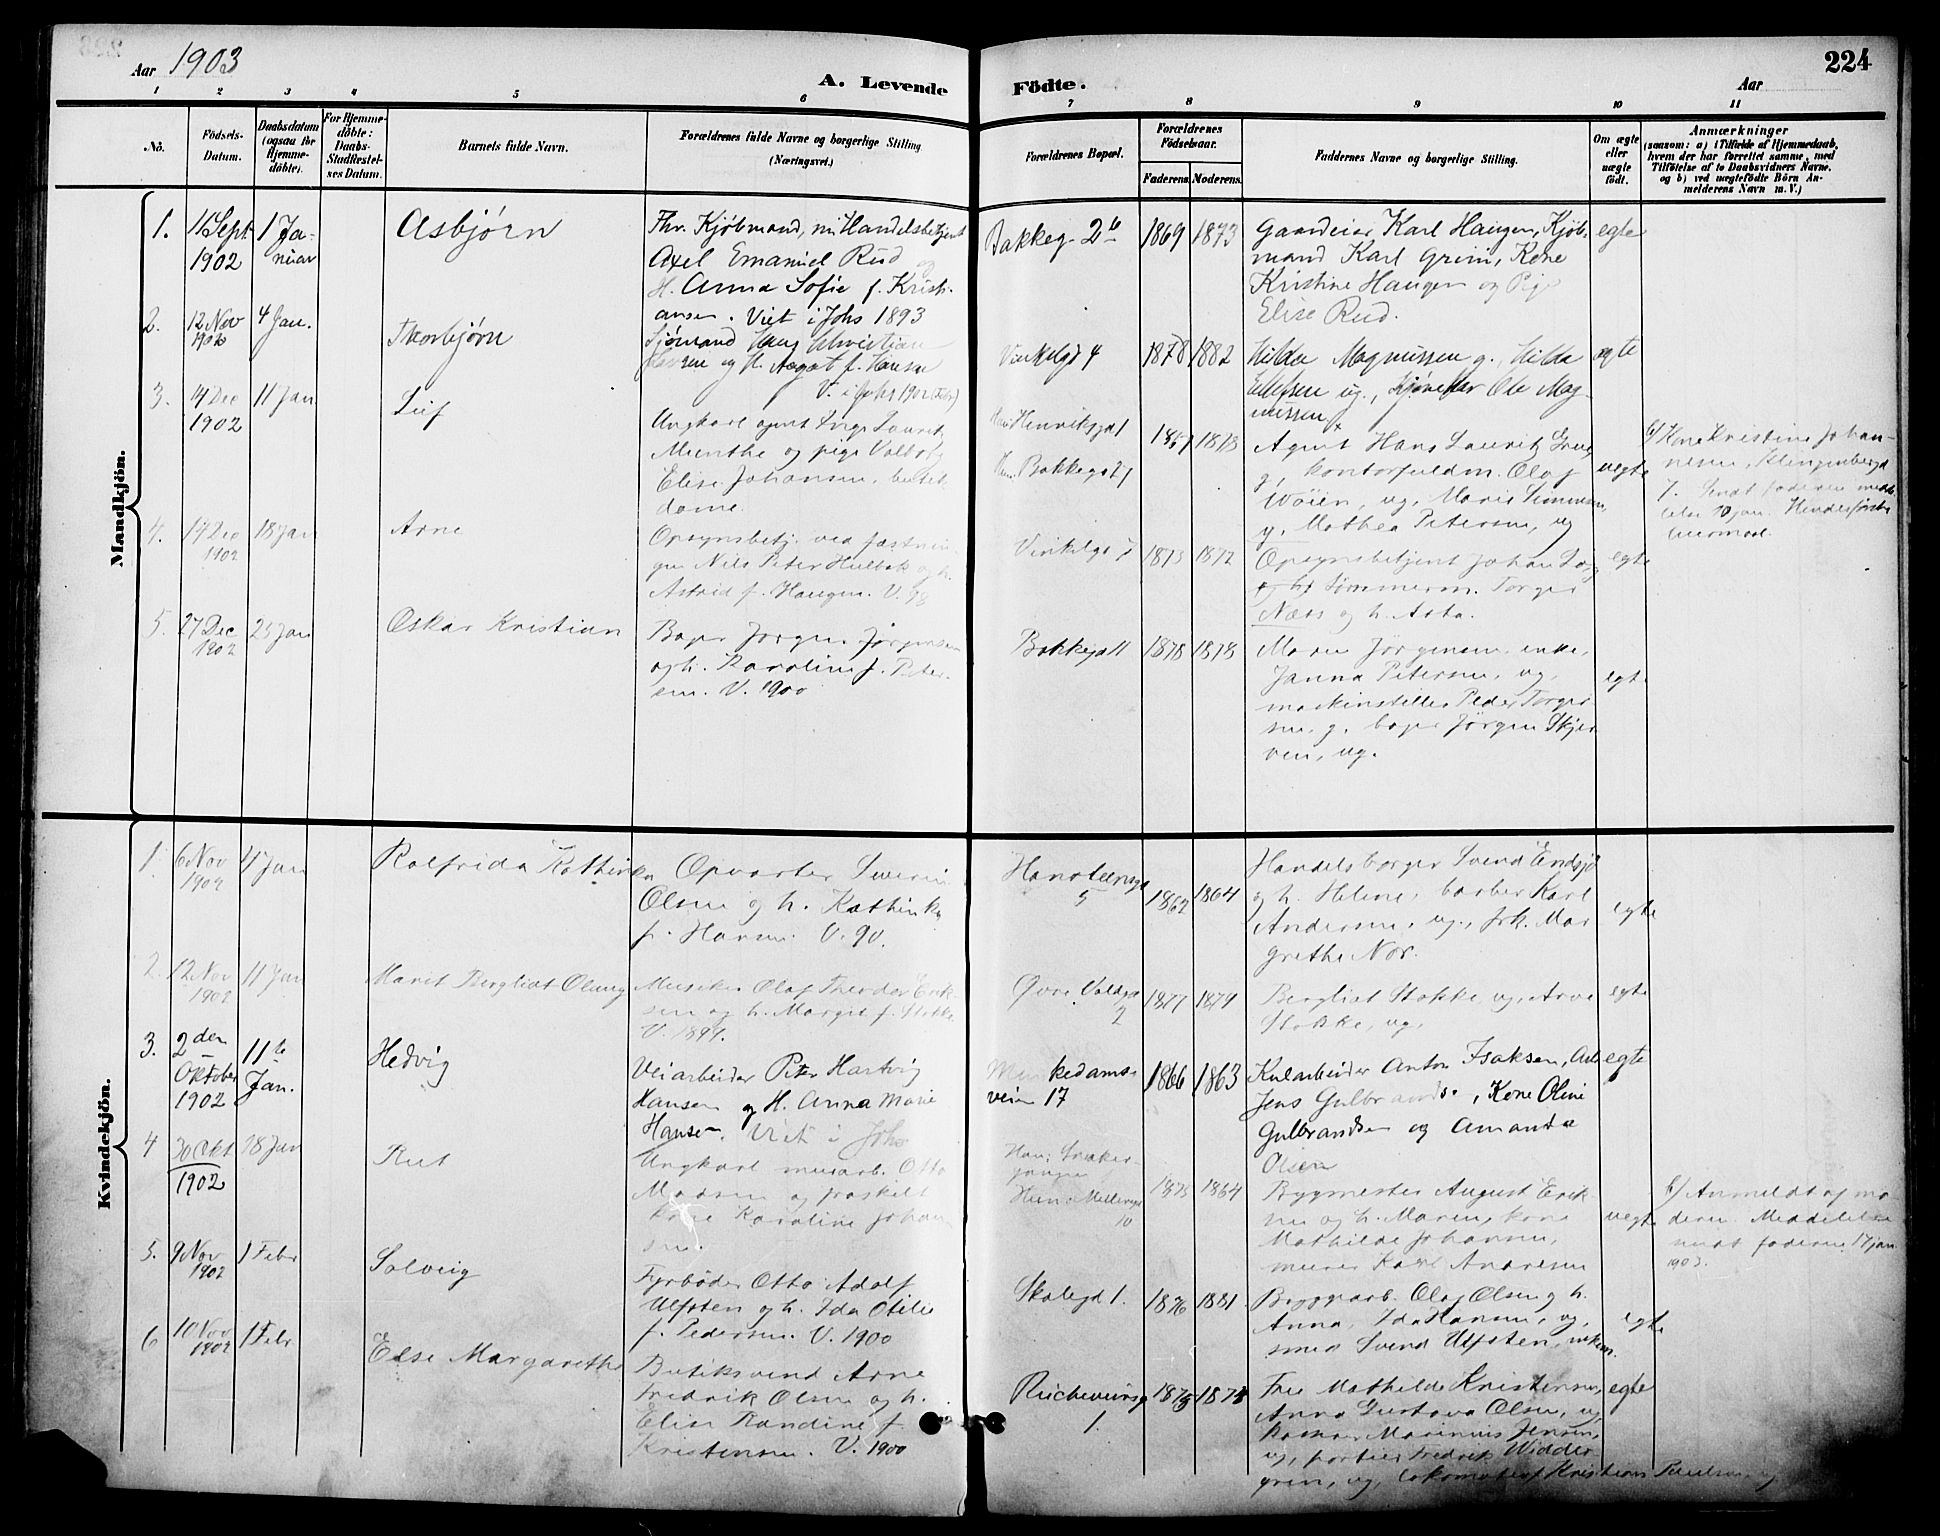 Aar 1903
A. Levende
Födte.
224
Aar
1 2 3 4 5 6 7 8 9 10 11
Nô.
Födsels-
Datum.
Daabsdatum
(ogsaa for
Hjemme-
döbte).
For Hjemme-
döbte:
Daabs-
Stadfæstel-
ses Datum.
Barnets fulde Navn.
Forældrenes fulde Navne og borgerlige Stilling
(Næringsvei.)
Forældrenes Bopæl.
Forældrenes
Födselsaar.
Faderens.
Moderens.
Faddernes Navne og borgerlige Stilling.
Om ægte
eller
uægte
födt.
Anmærkninger
(saasom: a) i Tilfælde af Hjemmedaab,
hvem der har forrettet samme, med
Tilföielse af to Daabsvidners Navne,
og b) ved uægtefödte Börn An-
melderens Navn m. V.)
Mandkjön.
1.
11 Sept
1902
1 Ja-
nuar
Asbjørn
Fhv. Kjøbmand, nu Handelsbetjent
Axel Emanuel Rud og
H. Anna Sofie f. Kristi-
ansen. Viet i Johs 1893
Bakkeg. 2b
1869
1873
Gaardeier Karl Haugen, Kjøb-
mand Karl Grim, Kone
Kristine Haugen og Pige
Elise Rud.
egte
2.
12 Nov
1902
4 Jan.
Thorbjørn
Sjømand Christian
og H. Aagot f. Hansen
V. i Johs 1902
Vinkelgd 4
1878
1882
Hilda Magnussen g., Hilda
Ellefsen ug., Ole Mag-
nussen
egte
3.
14 Dec
1902
11 Jan
Leif
Ungkarl agent Inge Lauritz
Munthe og pige Valborg
Elise Johansen, butik-
dame.
Han: Henriksgd 1
Hun: Bakkegd 21
1867
1878
Agent Hans Lauritz
g, kontorfuldm. Olaf
Woien, ug., Marie Simensen,
g. Mathea Petersen, ug
uegte
6) Kone Kristine Johan-
nesen, Klingenberggd
7. Sendt faderen medde-
lelse 10 jan. Hendes første
4.
14 Dec
1902
18 Jan
Arne
Opsynsbetj. ved fæstnin-
gen Nils Peter Hulbak og h.
Astrid f. Haugen. V. 98
Vinkelgd 7
1873
1872
Opsynsbetjent Johan
og h, Tømmerm. Torger
Næss og h. Asta.
egte
5.
27 Dec
1902
25 Jan
Oskar Kristian
Bager Jørgen Jørgensen
og h. Karoline f. Peter-
sen. V. 1900
Bakkegd 11
1878
1878
Maren Jørgensen, enke,
Janna Petersen, ug,
maskinstiller Peder Torger
sen, g. bager Jørgen Skjer
ven, ug.
egte
Kvindekjön.
1.
6 Nov
1902
4 Jan
Rolfrida Kathinka
Opvarter Severin
Olsen og h. Kathinka
f. Hansen. V. 90.
Hansteensgd
5
1862
1864
Handelsborger Svend Endsjø
og h. Helene, barber Karl
Andersen, ug., frk. Mar
grethe Nor.
egte
2.
12 Nov
1902
11 Jan
Marit Bergliot Olaug
Musiker Olaf Theodor Erik-
sen og h. Margit f. Stokke
V. 1899.
Øvre Voldgd
2
1877
1879
Bergliot Stokke, ug, Arne
Stokke, ug.
egte
3.
2den
Oktober
1902
11te
Jan.
Hedvig
Veiarbeider Peter Hartvig
Hansen og H. Anna Marie
Hansen. Viet i Johs
Munkedams-
veien 17
1866
1863
Kularbeider Anton Isaksen, Arb.
Jens Gulbrands., Kone Oline
Gulbrandsen og Amanda
Olsen
egte
4
30 Okt
1902
18 Jan
Rut
Ungkarl murarb. Otto
Madsen og fraskilt
kone Karoline Johan
sen.
Han:
Hun: Møllergd
10
1875
1864
Bygmester August Erik-
sen og h. Maren, kone
Mathilde Johansen,
murer Karl Andresen
uegte
6) Anmeldt af mo
deren. Meddelelse
sendt faderen 17 jan
1903.
5.
9 Nov
1902
1 Febr
Solveig
Fyrbøder Otto Adolf
Ulfsten og h. Ida Otilie
f. Pedersen. V. 1900
Skolegd 1.
1876
1881.
Bryggarb. Olaf Olsen og h.
Anna, Ida Hansen, ug,
smed Svend Ulfsten, enkem.
egte
6
10 Nov
1902
1 Febr
Else Margarethe
Butiksvend Arne
Fredrik Olsen og h.
Elise Randine f.
Kristensen. V. 1900
1.
1875
1874
Fru Mathilde Kristensen,
Anna Gustava Olsen, ug,
Marinius Jensen,
ug, portier Fredrik Widder
gren, ug, Kristian Paulsen, ug
egte